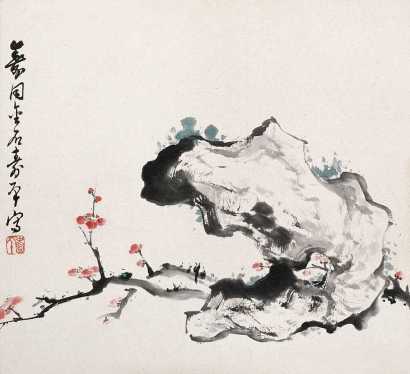 義同金石壽平寫